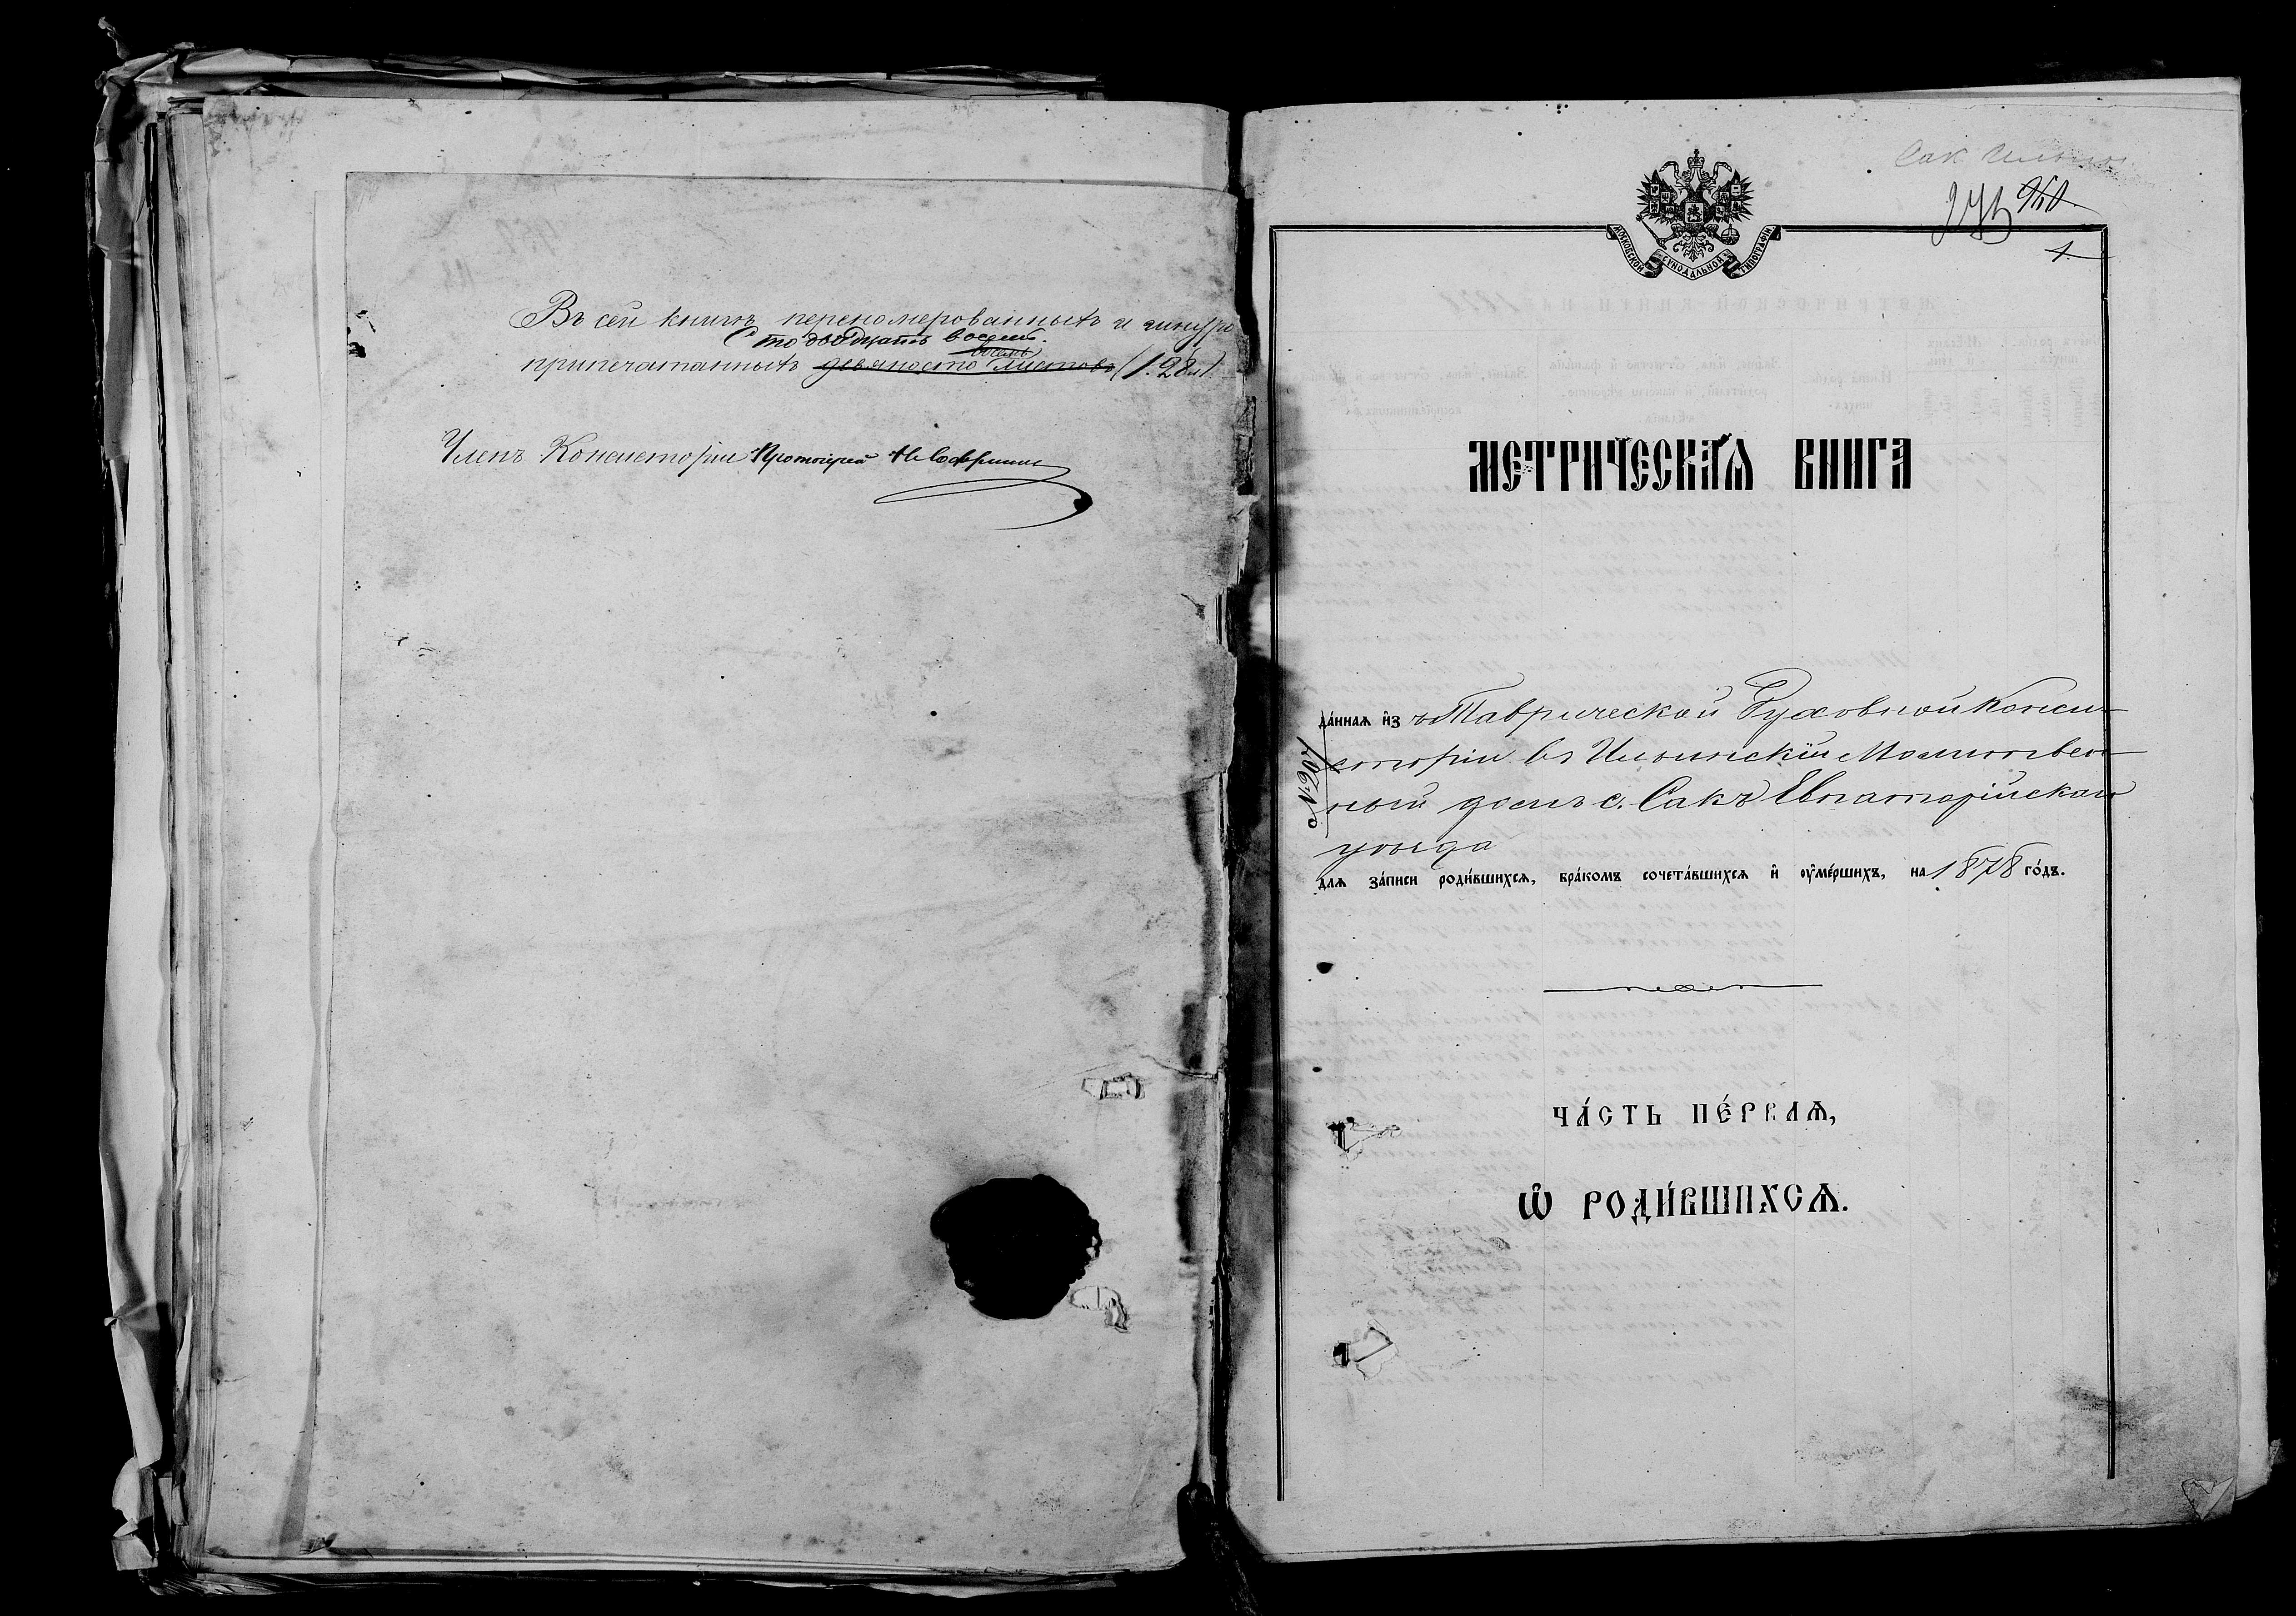 Въ сей книгѣ перенумерованныхъ и шнуро
Сто двадцать восемь
восемь
припечатанныхъ девяносто листовъ (128 л).
Членъ Консисторіи Протоіерей
Сак Ильин
950
1
МОСКОВСКОЙ СѴНОДАЛЬНОЙ ТИПОГРАФІИ
МЕТРИЧЕСКАЯ КНИГА
№ 207
да́ннаѧ и҆з ъ Таврической Духовной Конси-
сторіи въ Ильинскій Молитвен-
ный домъ с. Сакъ Евпаторійскаго
уѣзда
длѧ за́писи роди́вшихсѧ, бра́комъ сочета́вшихсѧ и҆ ᲂу҆ме́ршихъ, на 1878 го́дъ.
ЧА́СТЬ ПЕ́РВАѦ,
Ѽ РОДИ́ВШИХСѦ.